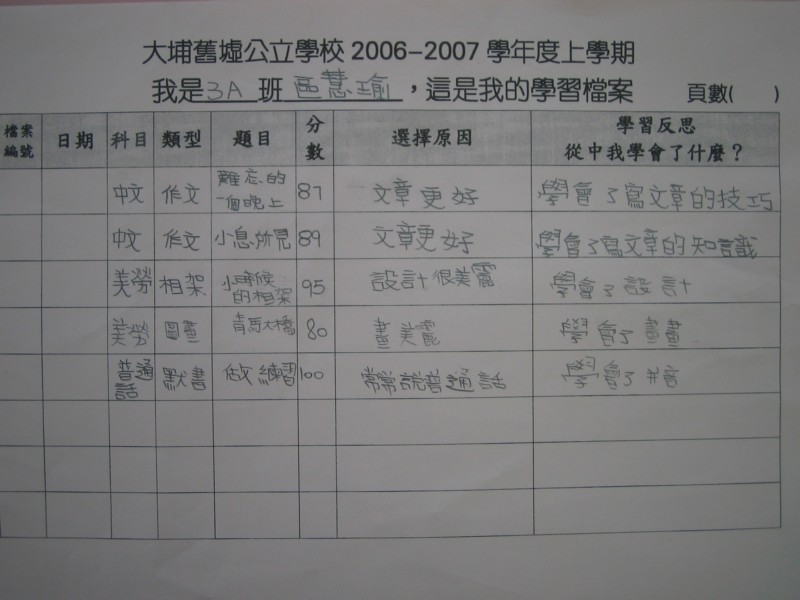 大埔舊墟公立學校 2006-2007 學年度上學期
我是 3A 班 區慧瑜 ,這是我的學習檔案 頁數( )
檔案編號 日期 科目 類型 題目 分數 選擇原因 學習反思 從中我學會了什麼?
中文 作文 難忘的一個晚上 87 文章更好 學會了寫文章的技巧
中文 作文 小息所見 89 文章更好 學會了寫文章的知識
美勞 相架 小時候的相架 95 設計很美麗 學會了設計
美勞 圖畫 青馬大橋 80 畫美麗 學會了畫畫
普通話 默書 做練習 100 常常說普通話 學會了拼音